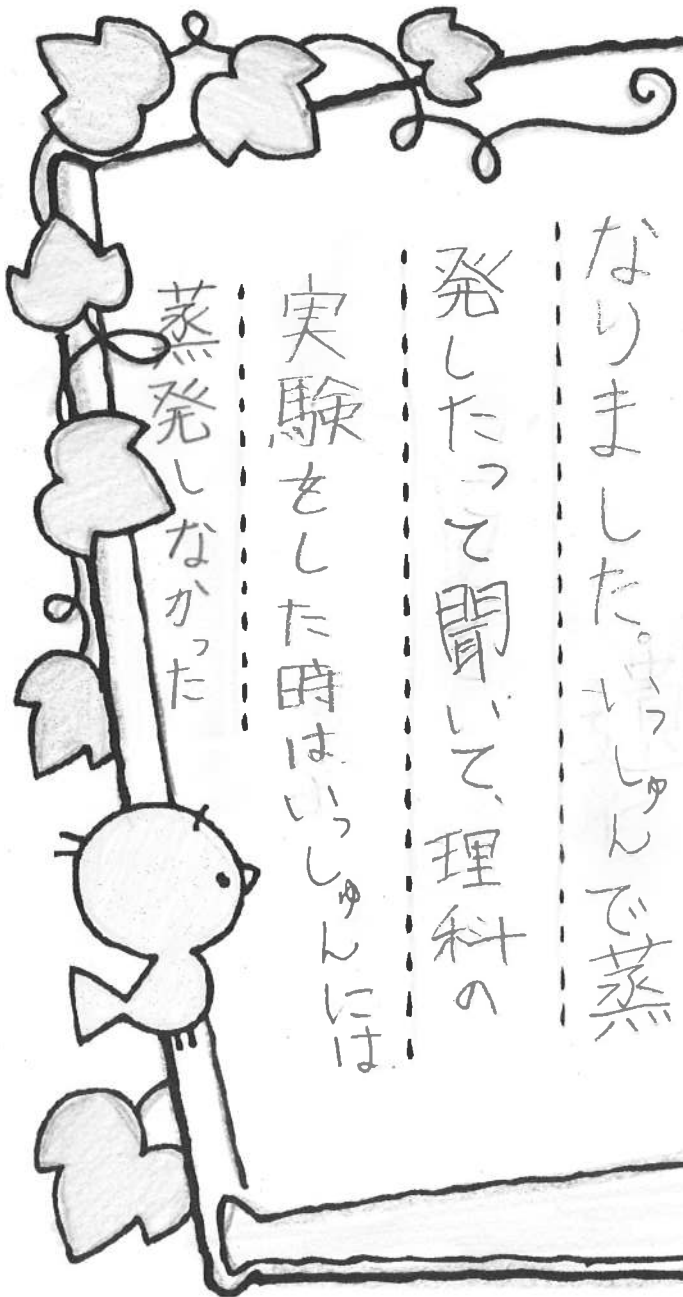 なりました。いっしゅんで蒸
発したって聞いて、理科の
実験をした時はいっしゅんには
蒸発しなかった